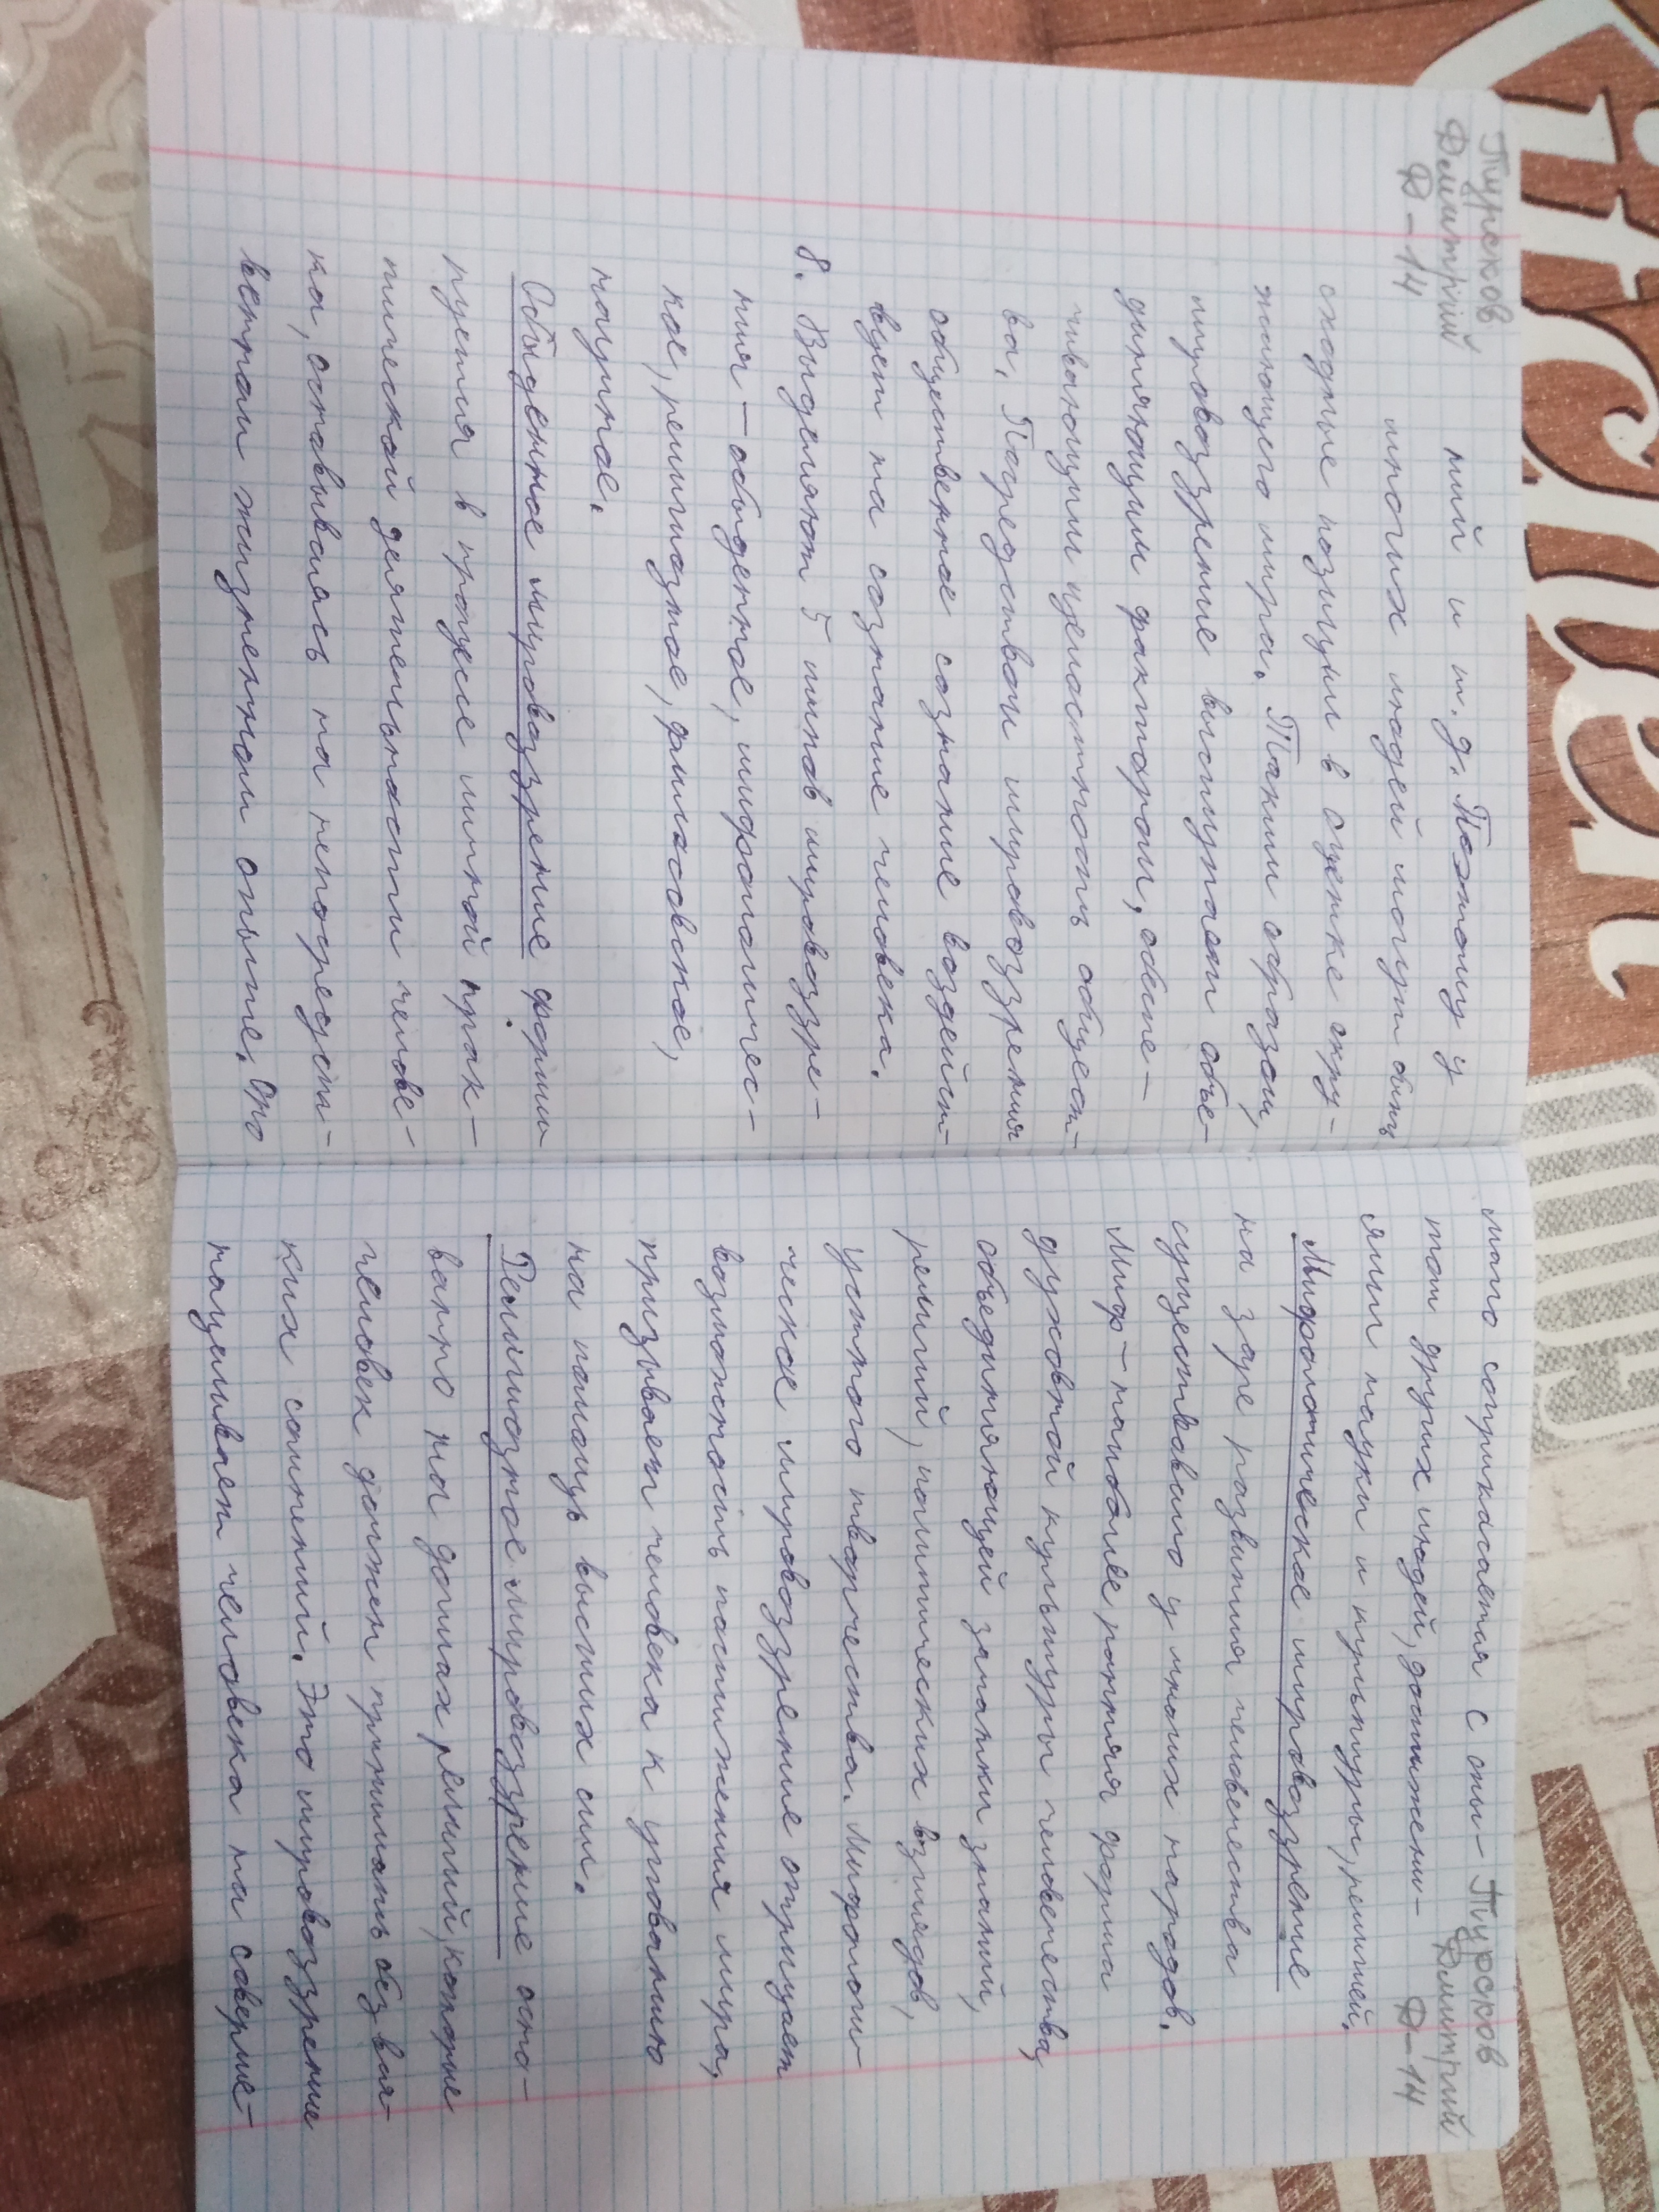 Пурсков
Дмитрий
Д-14
ний и т.д. Поэтому у
многих людей могут быть
сходные позиции в оценке окру-
жающего мира. Таким образом,
мировоззрение выступает объе-
диняющим фактором, обеспе-
чивающим целостность общест-
ва. Посредством мировоззрения
общественное сознание воздейст-
вует на сознание человека.
8. Выделяют 5 типов мировоззре-
ния - обыденное, мифологичес-
кое, религиозное, философское,
научное.
Обыденное мировоззрение форми-
руется в процессе личной прак-
тической деятельности челове-
ка, основываясь на непосредст-
венном жизненном опыте. Оно
Пурсков
Дмитрий
Д-14
мало соприкасается с опы-
том других людей, достижени-
ями науки и культуры, религией.
Мифологическое мировоззрение
на заре развития человечества
существовало у многих народов.
Миф - наиболее ранняя форма
духовной культуры человечества,
объединяющей зачатки знаний,
религий, политических взглядов,
устного творчества. Мифологи
ческое мировоззрение отрицает
возможность постижения мира,
призывает человека к упованию
на помощь высших сил.
Религиозное мировоззрение осно-
вано на догмах религий, которые
человек должен принимать без вся-
ких сомнений. Это мировоззрение
нацеливает человека на соверше-